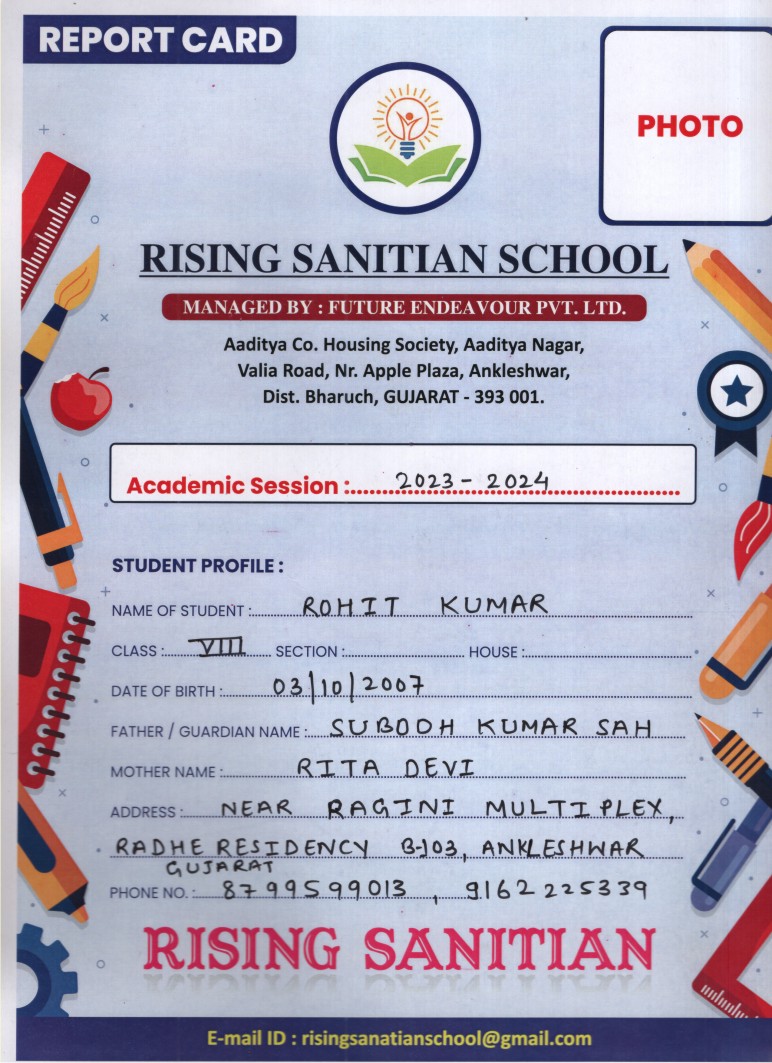 REPORT CARD
PHOTO
RISING SANITIAN SCHOOL
MANAGED BY : FUTURE ENDEAVOUR PVT. LTD.
Aaditya Co. Housing Society, Aaditya Nagar,
Valia Road, Nr. Apple Plaza, Ankleshwar,
Dist. Bharuch, GUJARAT - 393 001.
Academic Session : 2023 - 2024
STUDENT PROFILE :
NAME OF STUDENT : ROHIT KUMAR
CLASS : VIII SECTION : HOUSE :
DATE OF BIRTH : 03/10/2007
FATHER / GUARDIAN NAME : SUBODH KUMAR SAH
MOTHER NAME : RITA DEVI
ADDRESS : NEAR RAGINI MULTIPLEX,
RADHE RESIDENCY B-103, ANKLESHWAR
GUJARAT
PHONE NO. : 8799599013 , 9162225339
RISING SANITIAN
E-mail ID : risingsanatianschool@gmail.com